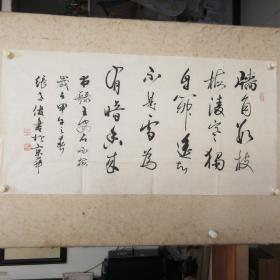 墙角数枝
梅凌寒独
自开遥知
不是雪为
有暗香来
右录王安石咏梅
岁次甲午之春
张文俊书于京华